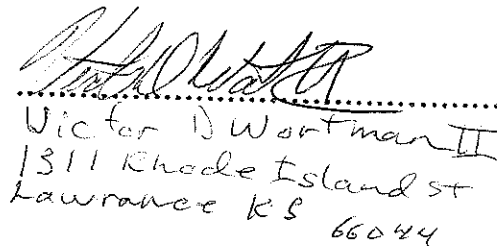 Victor D Wortman II
1311 Rhode Island st
Lawrance KS
66044